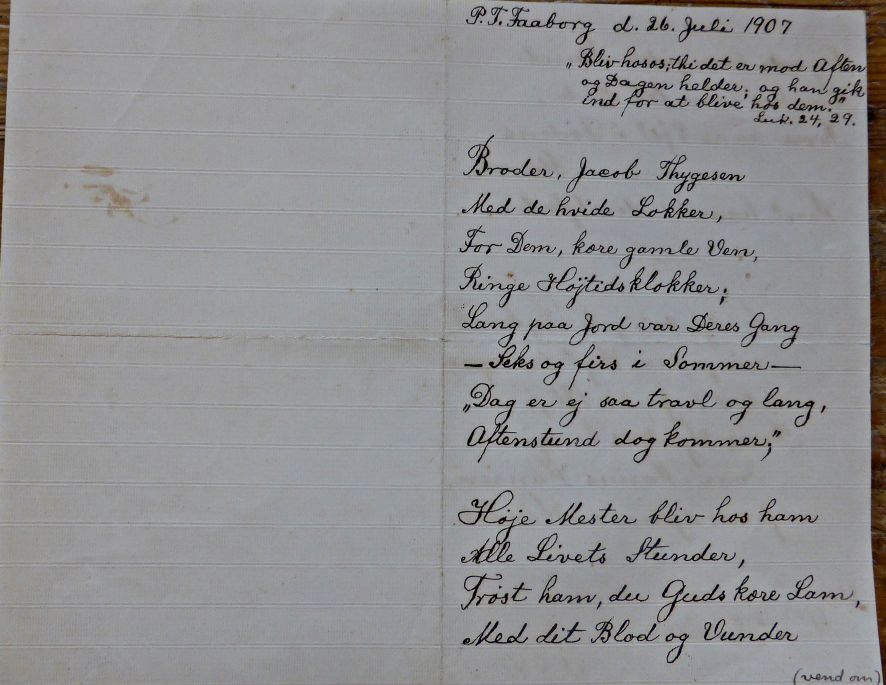 P.T. Faaborg d. 26. Juli 1907
„Bliv hos os; thi det er mod Aften
og Dagen helder; og han gik
ind for at blive hos dem.”
Luk. 24, 29.
Broder, Jacob Thygesen
Med de hvide Lokker,
For Dem, kære gamle Ven,
Ringe Højtidsklokker;
Lang paa Jord var Deres Gang
— Seks og firs i Sommer —
„Dag er ej saa travl og lang,
Aftenstund dog kommer;”
Høje Mester bliv hos ham
Alle Livets Stunder,
Trøst ham, du Guds kære Lam,
Med dit Blod og Vunder
(vend om)